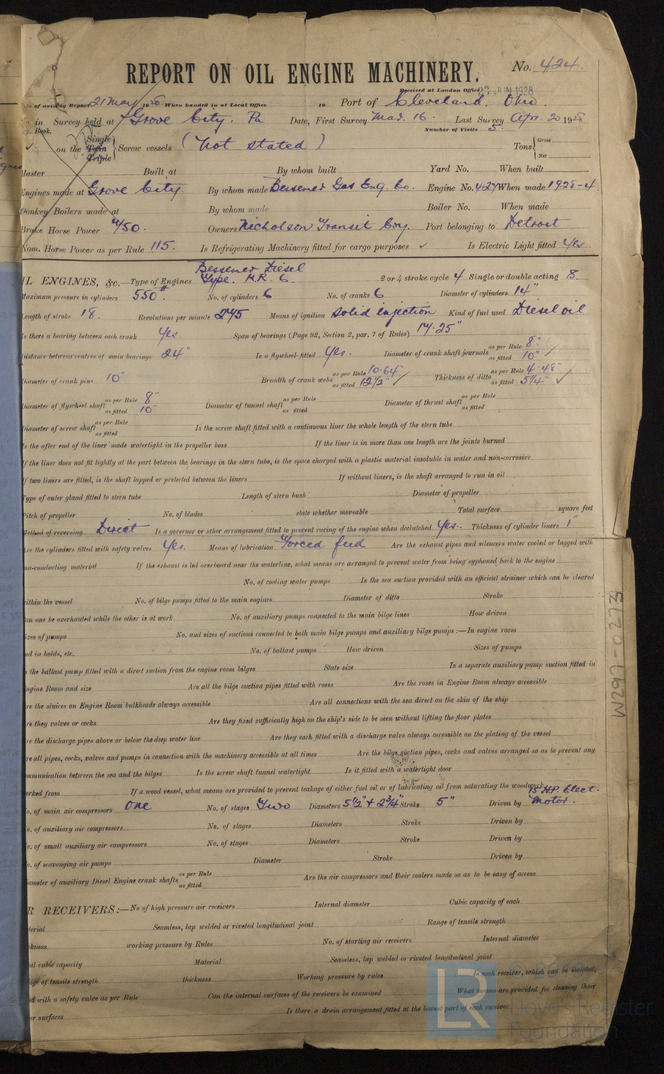 REPORT ON OIL ENGINE MACHINERY. No. 424
Received at London Office JUN 1928
of writing Report 21 May When handed in at Local Office 19 Port of Cleveland, Ohio
in Survey held at Grove City, Pa Date, First Survey Mar. 16 Last Survey Apr. 20 1928
Book. Number of Visits 5
on the Single Twin Triple Screw vessels (Not stated) Tons Gross Net
Master Built at By whom built Yard No. When built
Engines made at Grove City By whom made Bessemer Gas Eng Co. Engine No. 427 When made 1928-4
Donkey Boilers made at By whom made Boiler No. When made
Brake Horse Power 450. Owners Nicholson Transit Coy. Port belonging to Detroit
Nom. Horse Power as per Rule 115. Is Refrigerating Machinery fitted for cargo purposes Is Electric Light fitted Yes
IL ENGINES, &c.—Type of Engines Bessemer Diesel Type. R.R. 6 2 or 4 stroke cycle 4 Single or double acting S.
Maximum pressure in cylinders 550# No. of cylinders 6 No. of cranks 6 Diameter of cylinders 14"
Length of stroke 18. Revolutions per minute 275 Means of ignition Solid injection Kind of fuel used Diesel oil
Is there a bearing between each crank Yes Span of bearings (Page 92, Section 2, par. 7 of Rules) 17.25"
Distance between centres of main bearings 24" Is a flywheel fitted Yes. Diameter of crank shaft journals as per Rule 8" as fitted 10"
Diameter of crank pins 10" Breadth of crank webs as per Rule 10.64" as fitted 12½" Thickness of ditto as per Rule 4.48" as fitted 5¼"
Diameter of flywheel shaft as per Rule 8" as fitted 10" Diameter of tunnel shaft as per Rule as fitted Diameter of thrust shaft as per Rule as fitted
Diameter of screw shaft as per Rule as fitted Is the screw shaft fitted with a continuous liner the whole length of the stern tube
Is the after end of the liner made watertight in the propeller boss If the liner is in more than one length are the joints burned
If the liner does not fit tightly at the part between the bearings in the stern tube, is the space charged with a plastic material insoluble in water and non-corrosive
If two liners are fitted, is the shaft lapped or protected between the liners If without liners, is the shaft arranged to run in oil
Type of outer gland fitted to stern tube Length of stern bush Diameter of propeller
Pitch of propeller No. of blades state whether moveable Total surface square feet
Method of reversing Direct Is a governor or other arrangement fitted to prevent racing of the engine when declutched Yes. Thickness of cylinder liners 1"
Are the cylinders fitted with safety valves Yes. Means of lubrication Forced feed Are the exhaust pipes and silencers water cooled or lagged with
non-conducting material If the exhaust is led overboard near the waterline, what means are arranged to prevent water from being syphoned back to the engine
No. of cooling water pumps Is the sea suction provided with an efficient strainer which can be cleared
within the vessel No. of bilge pumps fitted to the main engines Diameter of ditto Stroke
Can one be overhauled while the other is at work No. of auxiliary pumps connected to the main bilge lines How driven
Sizes of pumps No. and sizes of suctions connected to both main bilge pumps and auxiliary bilge pumps:—In engine room
and in holds, etc. No. of ballast pumps How driven Sizes of pumps
Is the ballast pump fitted with a direct suction from the engine room bilges State size Is a separate auxiliary pump suction fitted in
Engine Room and size Are all the bilge suction pipes fitted with roses Are the roses in Engine Room always accessible
Are the sluices on Engine Room bulkheads always accessible Are all connections with the sea direct on the skin of the ship
Are they valves or cocks Are they fixed sufficiently high on the ship's side to be seen without lifting the floor plates
Are the discharge pipes above or below the deep water line Are they each fitted with a discharge valve always accessible on the plating of the vessel
Are all pipes, cocks, valves and pumps in connection with the machinery accessible at all times Are the bilge suction pipes, cocks and valves arranged so as to prevent any
communication between the sea and the bilges Is the screw shaft tunnel watertight Is it fitted with a watertight door
worked from If a wood vessel, what means are provided to prevent leakage of either fuel oil or of lubricating oil from saturating the woodwork
No. of main air compressors One No. of stages Two Diameters 5½" & 2¾" Stroke 5" Driven by 15 HP Elect. Motor.
No. of auxiliary air compressors. No. of stages Diameters Stroke Driven by
No. of small auxiliary air compressors No. of stages Diameters Stroke Driven by
No. of scavenging air pumps Diameter Stroke Driven by
Diameter of auxiliary Diesel Engine crank shafts as per Rule as fitted Are the air compressors and their coolers made so as to be easy of access
R RECEIVERS:—No of high pressure air receivers Internal diameter Cubic capacity of each
terial Seamless, lap welded or riveted longitudinal joint Range of tensile strength
ckness working pressure by Rules No. of starting air receivers Internal diameter
tal cubic capacity Material Seamless, lap welded or riveted longitudinal joint
nge of tensile strength thickness Working pressure by rules each receiver, which can be isolated,
ed with a safety valve as per Rule Can the internal surfaces of the receivers be examined What means are provided for cleaning their
er surfaces Is there a drain arrangement fitted at the lowest part of each receiver
W297-0273
LR
Lloyd's Register
Foundation